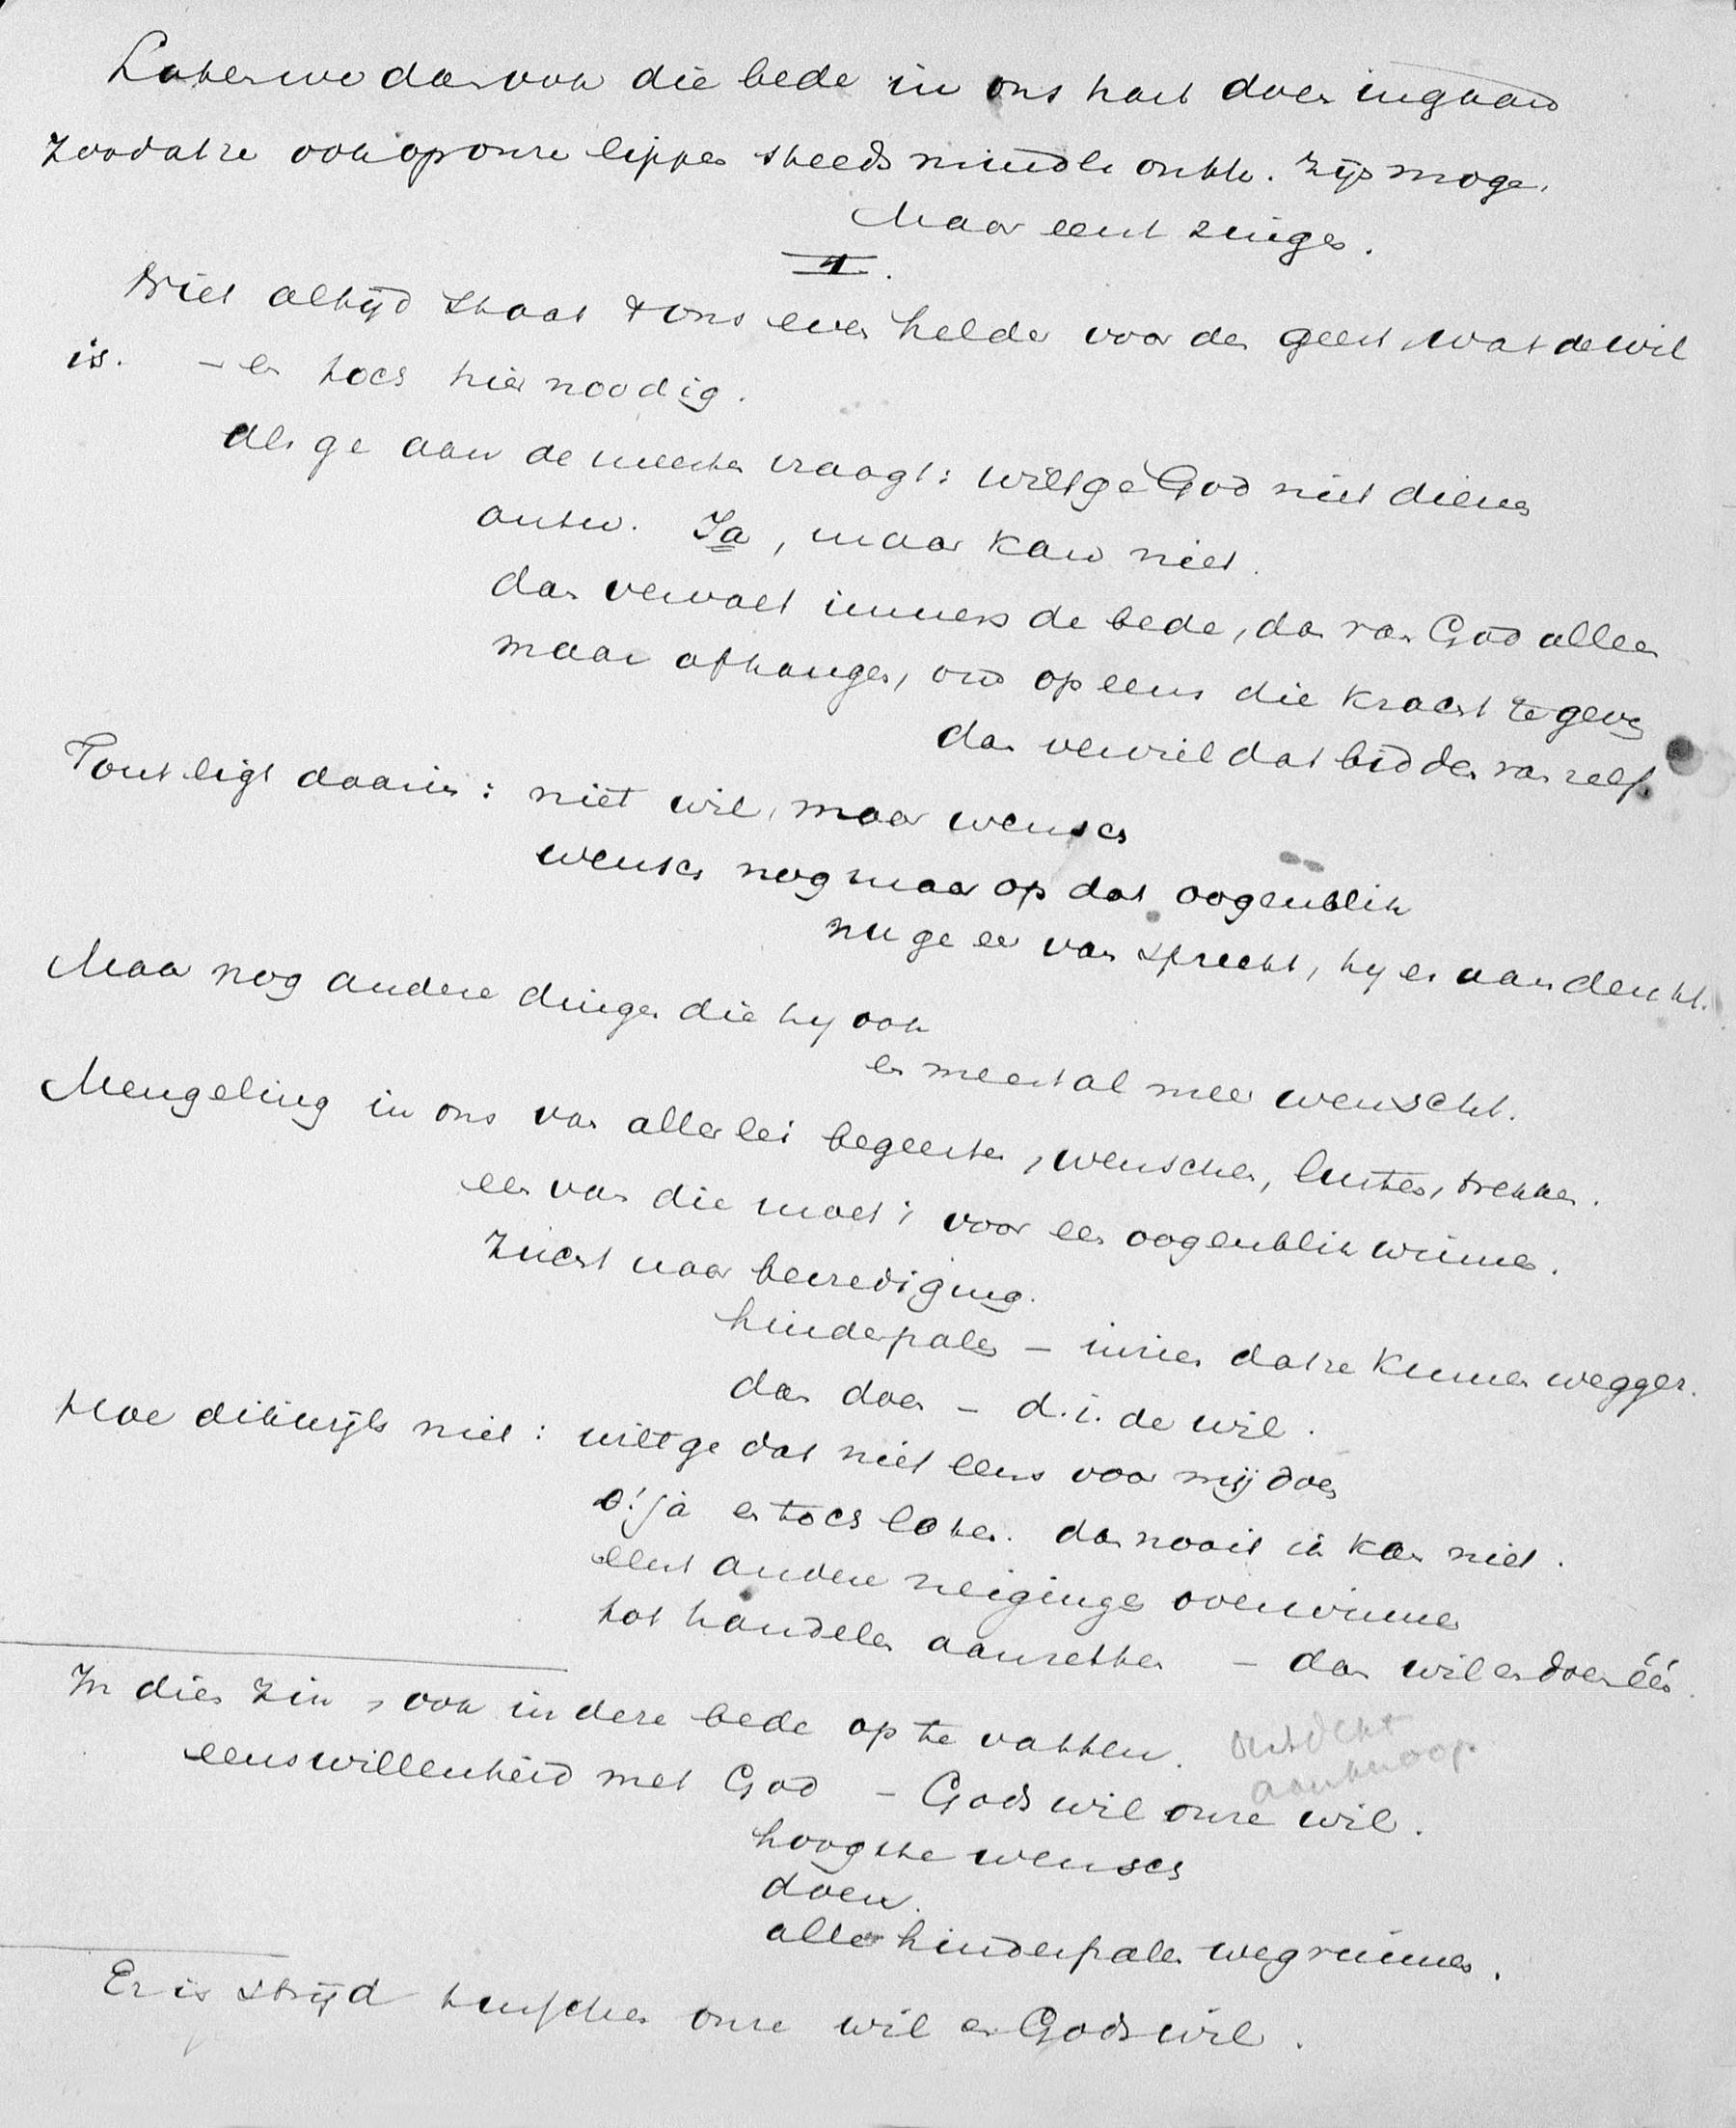 Laten we dan ook die bede in ons hart doen ingaan
zoodat ze ook op onze lippen steeds minder ontbr. zijn moge.
Maar eerst zingen.
II.
Niet altijd staat 't ons even helder voor den geest, wat de wil
is. – en toch hier noodig.
Als ge aan de meesten vraagt: wilt ge God niet dienen
antw. Ja, maar kan niet.
dan vervalt immers de bede, dan van God alleen
maar afhangen, om op eens die kracht te geven
dan verviel dat bidden van zelf.
Fout ligt daarin: niet wil, maar wensch
wensch nog maar op dat oogenblik
nu ge er van spreekt, hy er aan denkt.
Maar nog andere dingen die hy ook
en meestal meer wenscht.
Mengeling in ons van allerlei begeerten, wenschen, lusten, trekken.
een van die moet 't voor een oogenblik winnen.
Zucht naar bevrediging.
hinderpalen – inzien dat ze kunnen wegger.
dan doen – d.i. de wil.
Hoe dikwijls niet: wilt ge dat niet eens voor mij doen
o! ja en toch laten. dan nooit ik kan niet.
eerst andere neigingen overwinnen
tot handelen aanzetten – dan wil en doen één.
In dien zin, ook in deze bede op te vatten.
aanknoop
eenswillenheid met God – Gods wil onze wil.
hoogste wensch
doen.
alle hinderpalen wegruimen.
Er is strijd tusschen onze wil en Gods wil.